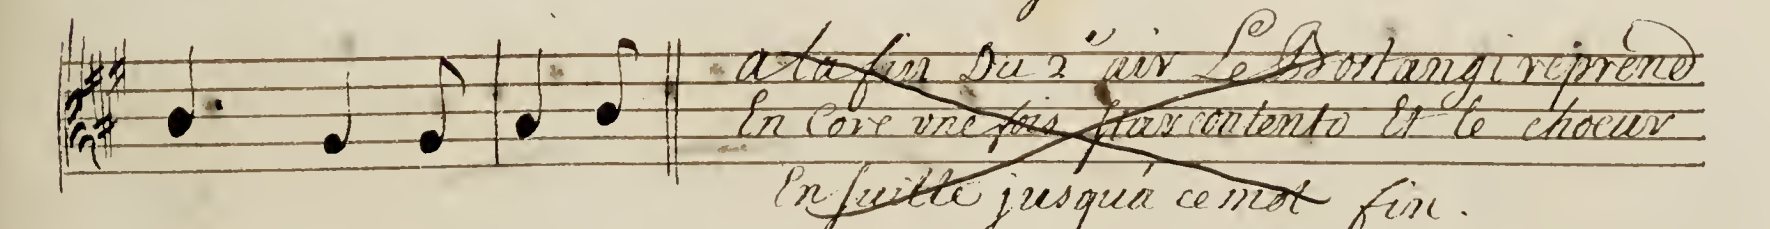 a la fin Du 2e air Le Bostangi reprend
En Core une fois star contento Et le choeur
En suitte jusqu'a ce mot fin.